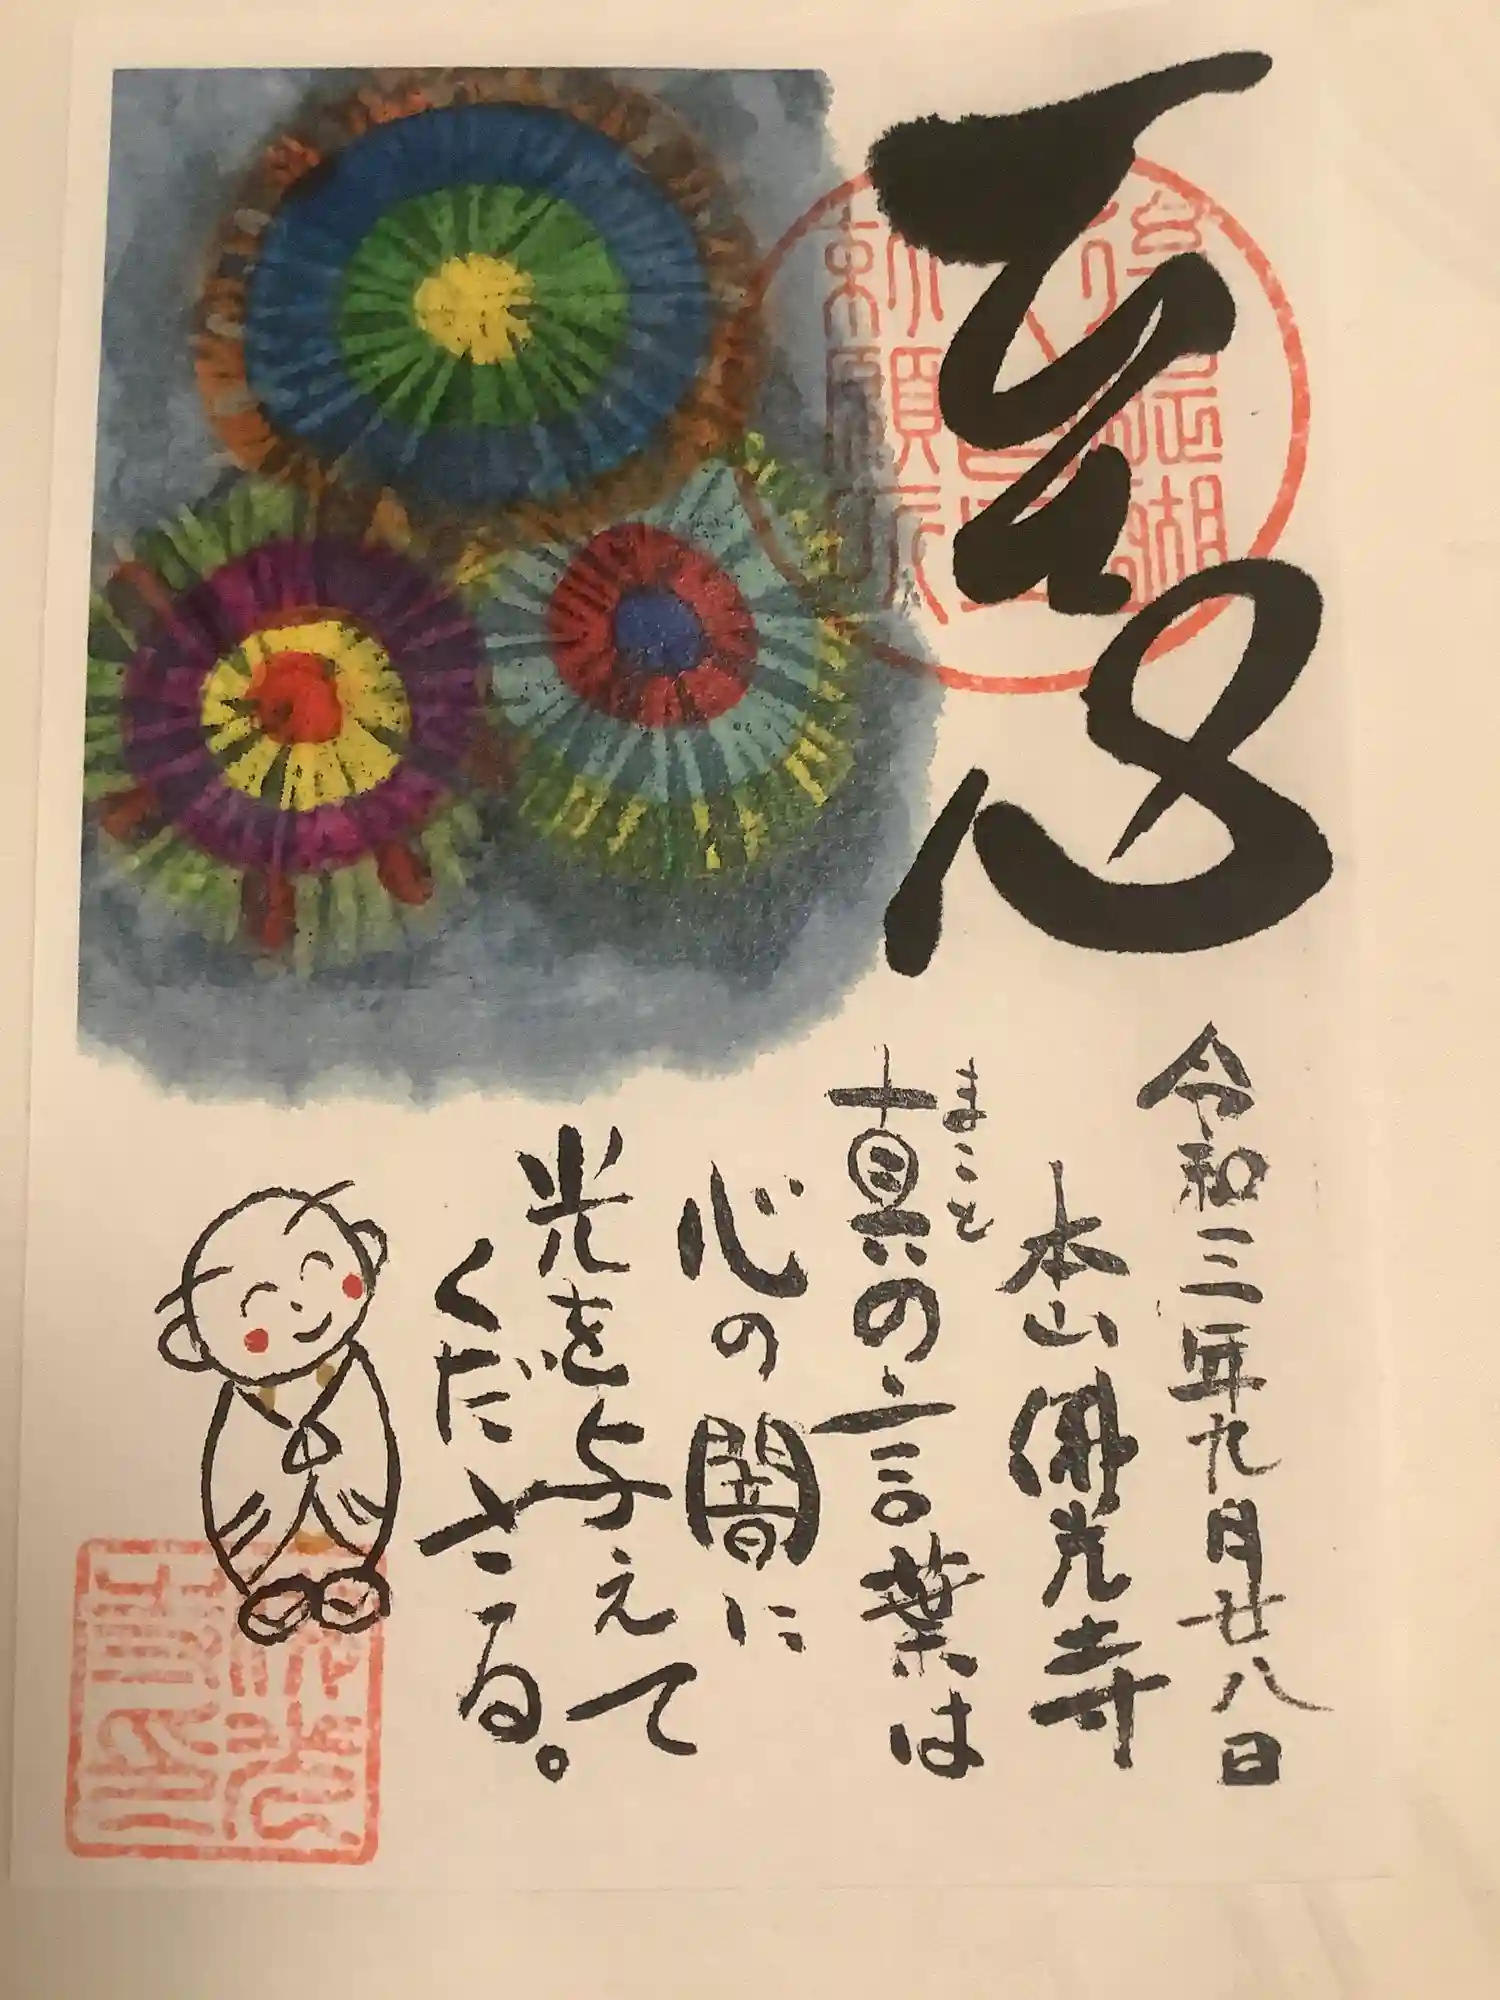 令和三年九月廿八日
本山佛光寺
まこと
真の言葉は
心の闇に
光を与えて
くださる。